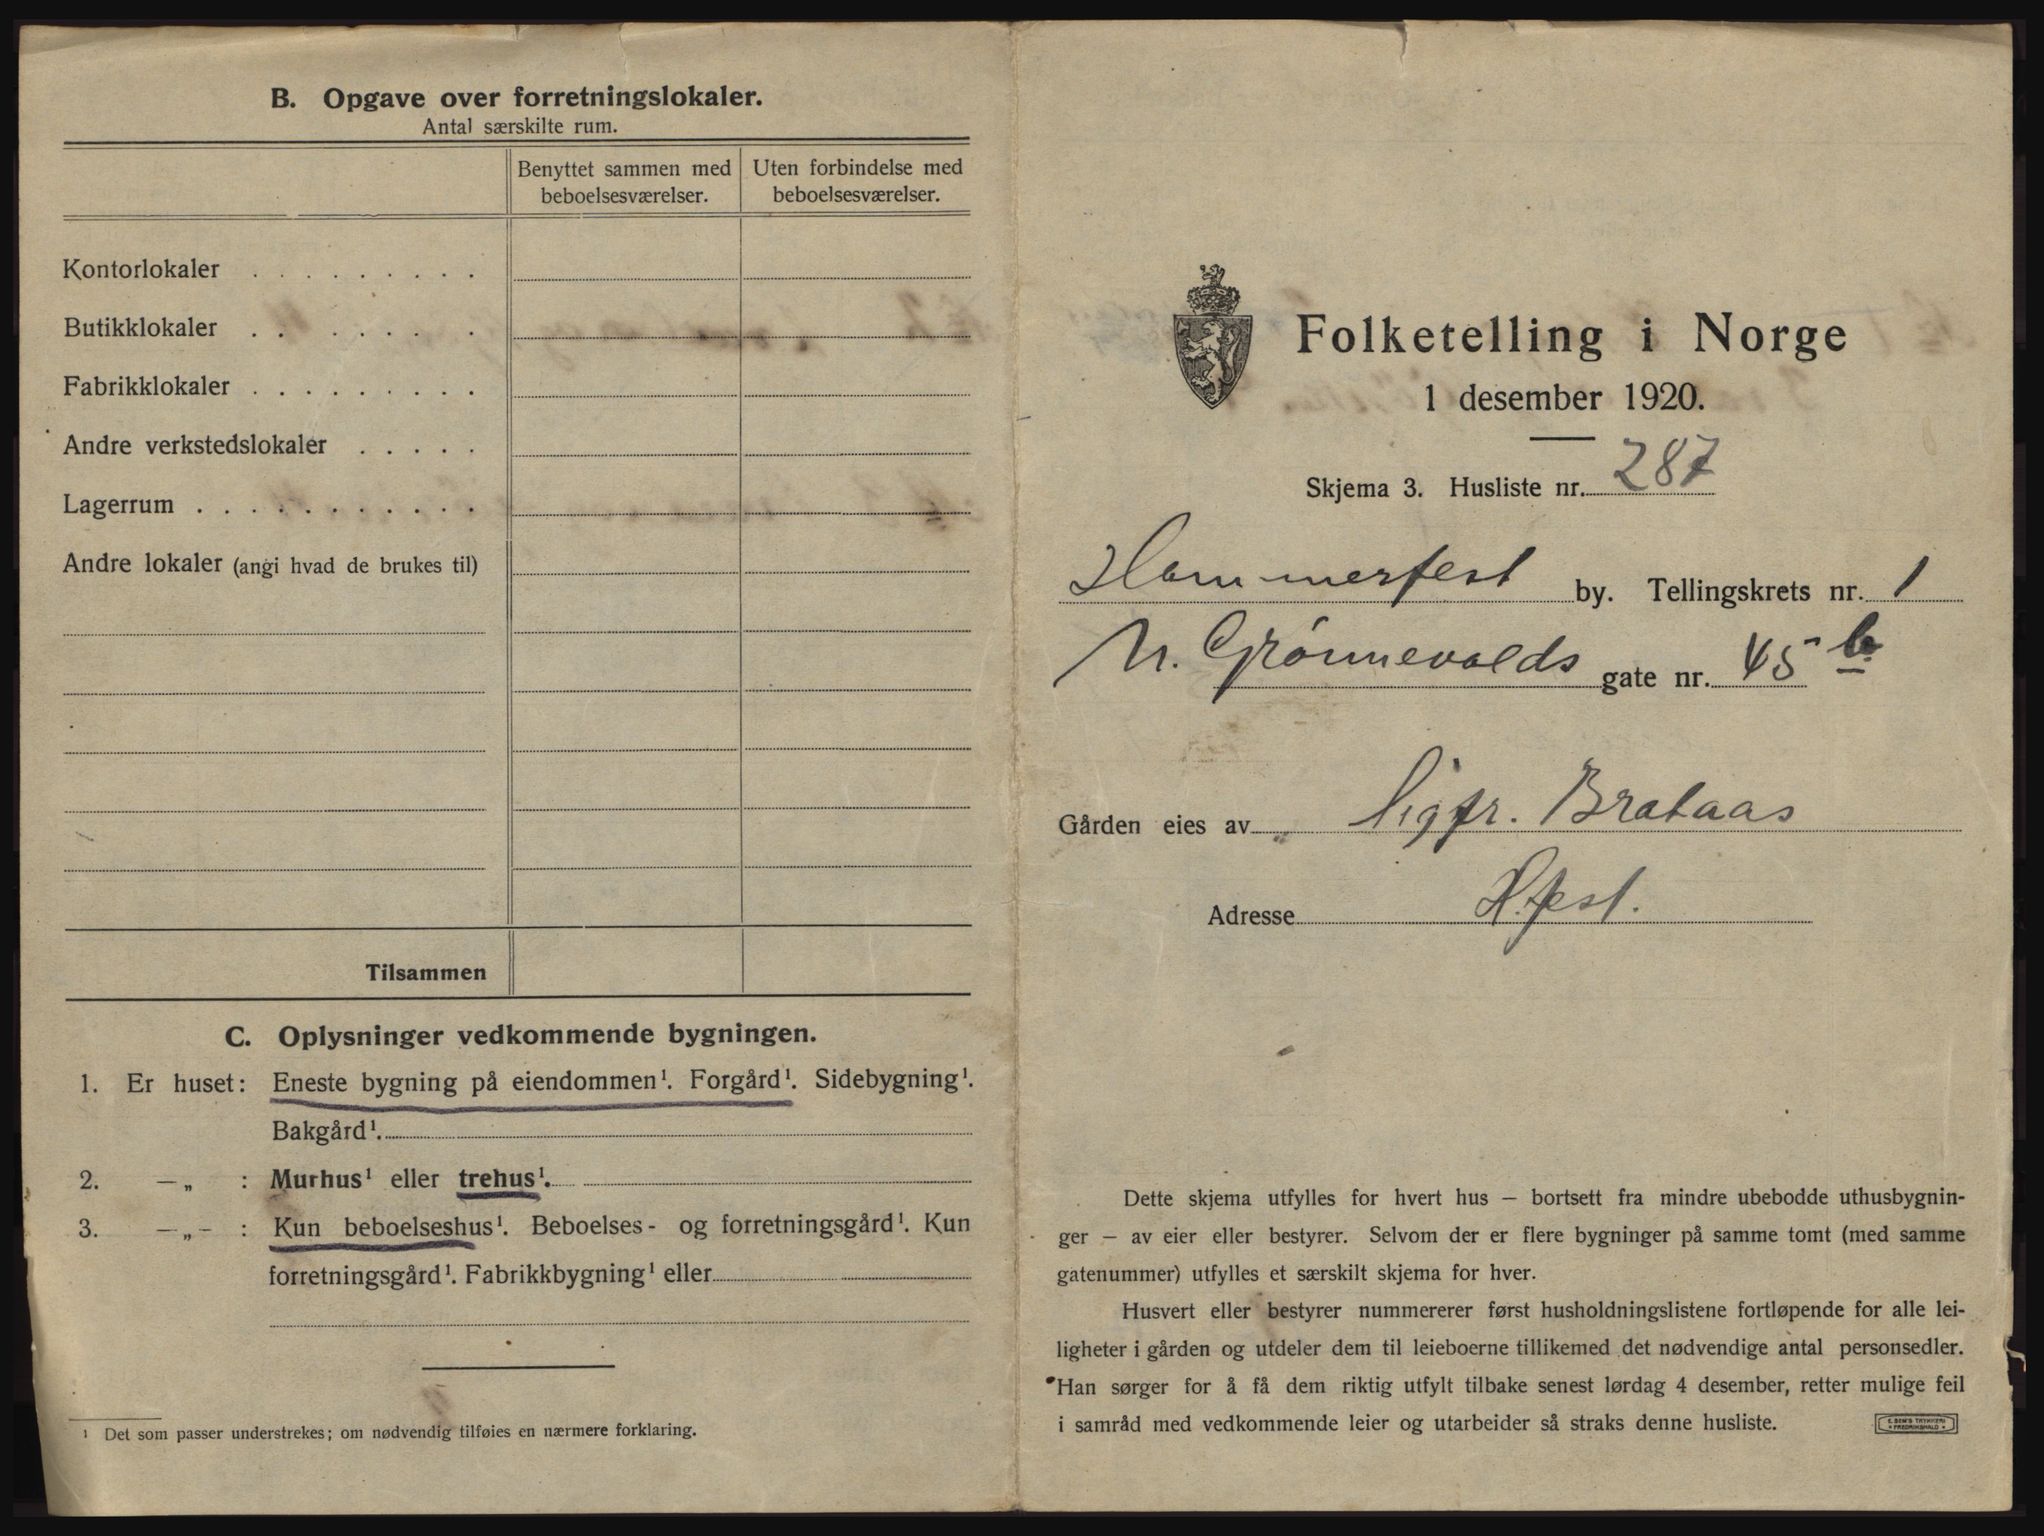 B. Opgave over forretningslokaler.
Antal særskilte rum.
Benyttet sammen med beboelsesværelser.
Uten forbindelse med beboelsesværelser.
Kontorlokaler . . . . . . . . .
Butikklokaler . . . . . . . .
Fabrikklokaler . . . . . . . . .
Andre verkstedslokaler . . . . .
Lagerrum . . . . . . . . . . .
Andre lokaler (angi hvad de brukes til)
Tilsammen
C. Oplysninger vedkommende bygningen.
1. Er huset: Eneste bygning på eiendommen¹. Forgård¹. Sidebygning¹.
Bakgård¹.
2. —„ : Murhus¹ eller trehus¹.
3. —„- : Kun beboelseshus¹. Beboelses- og forretningsgård¹. Kun
forretningsgård¹. Fabrikkbygning¹ eller
¹ Det som passer understrekes; om nødvendig tilføies en nærmere forklaring.
Folketelling i Norge
1 desember 1920.
Skjema 3. Husliste nr. 287
Hammerfest by. Tellingskrets nr. 1
N. Grønnevolds gate nr. 45 b
Gården eies av Sigfr. Brataas
Adresse H.fest.
Dette skjema utfylles for hvert hus — bortsett fra mindre ubebodde uthusbygnin-
ger — av eier eller bestyrer. Selvom der er flere bygninger på samme tomt (med samme
gatenummer) utfylles et særskilt skjema for hver.
Husvert eller bestyrer nummererer først husholdningslistene fortløpende for alle lei-
ligheter i gården og utdeler dem til leieboerne tillikemed det nødvendige antal personsedler.
Han sørger for å få dem riktig utfylt tilbake senest lørdag 4 desember, retter mulige feil
i samråd med vedkommende leier og utarbeider så straks denne husliste.
E. SEM'S TRYKKERI
FREDRIKSHALD